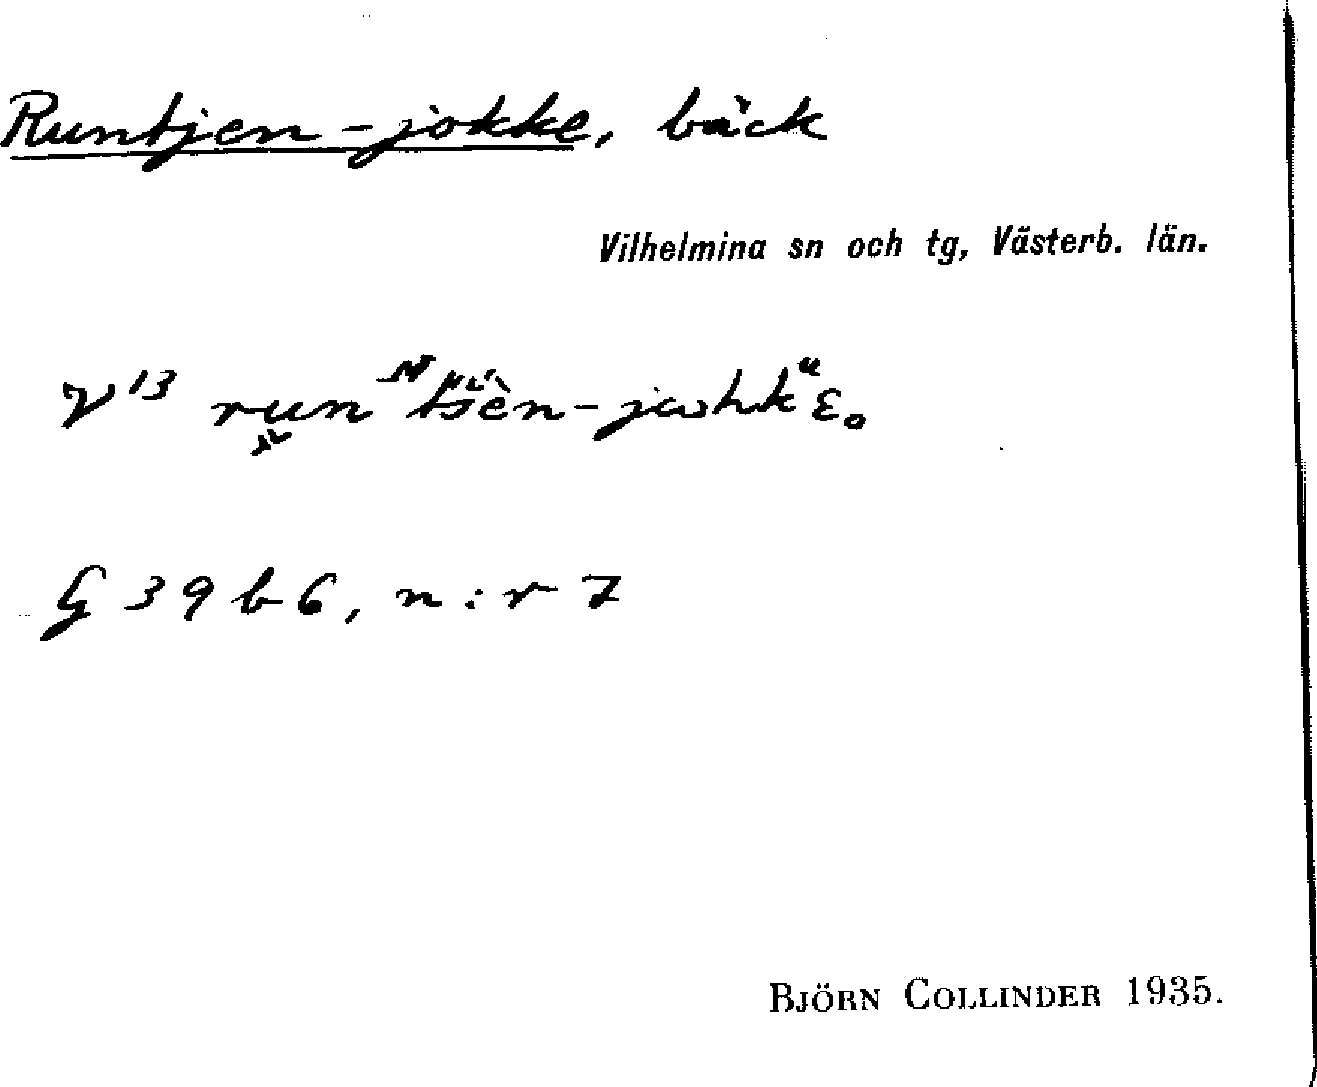 Runtjen-jokke, bäck
Vilhelmina sn och tg, Västerb. län.
V13
G 39 b 6, n:r 7
BJÖRN COLLINDER 1935.